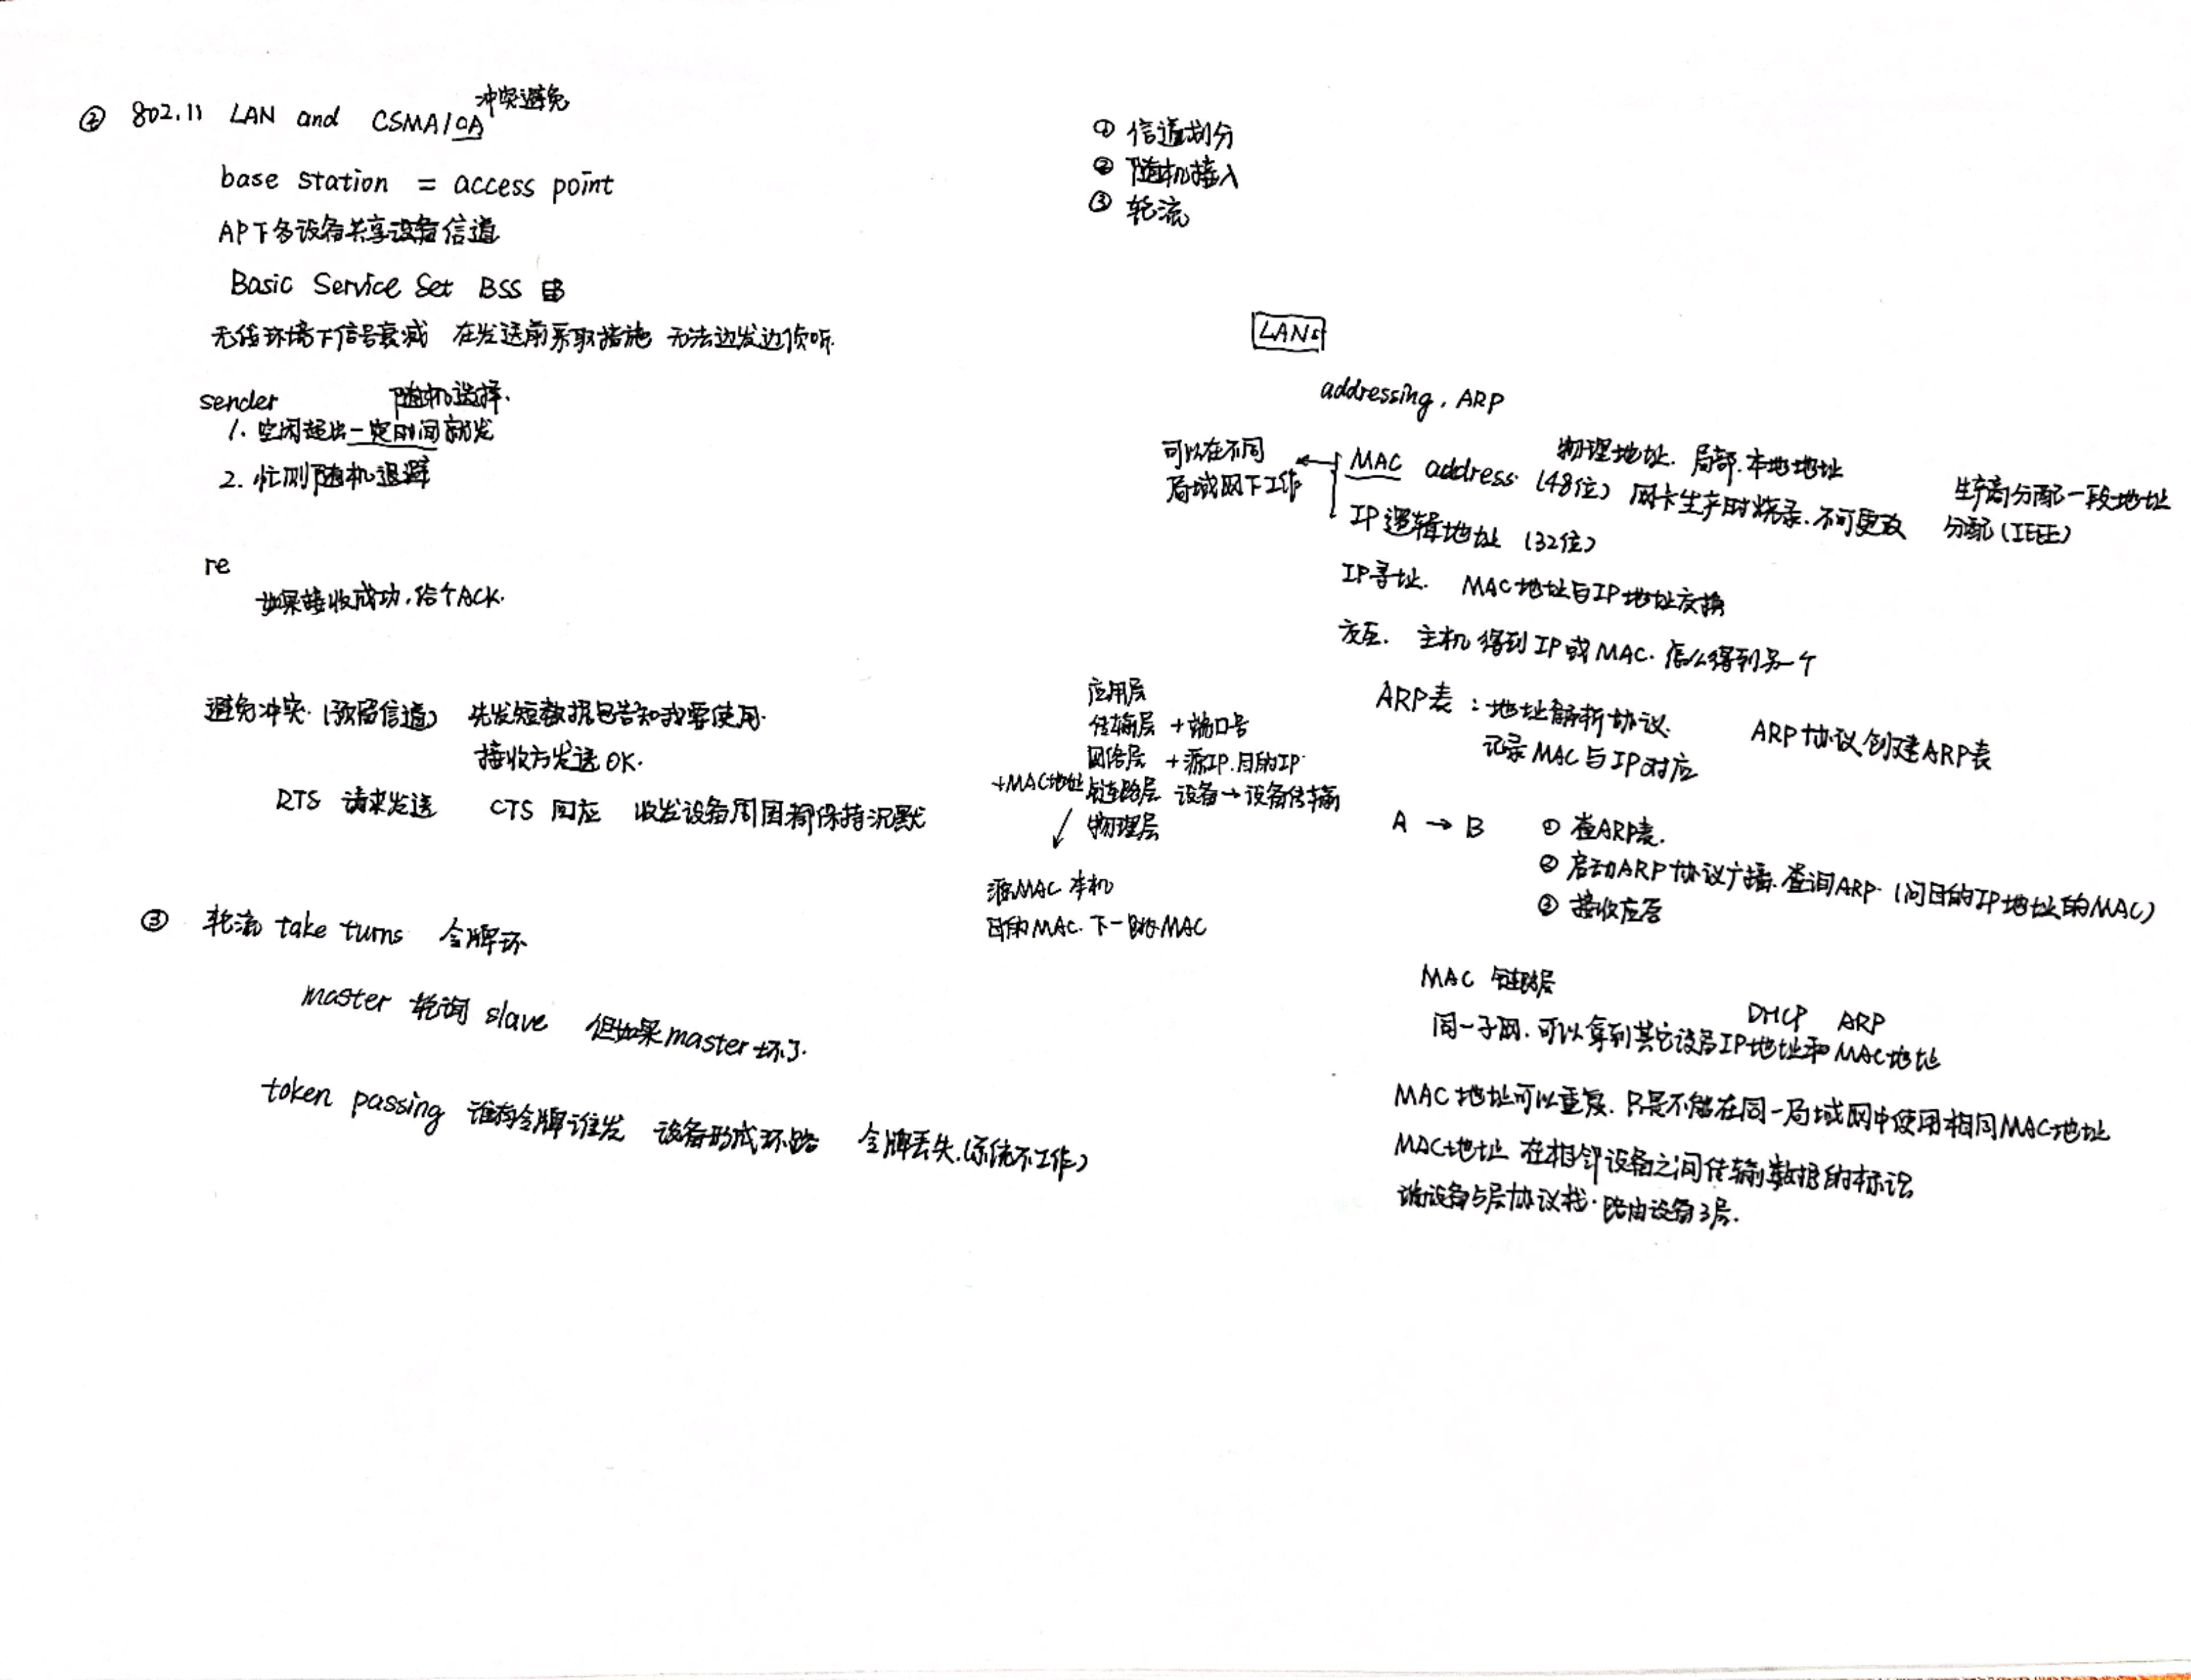 ② 802.11 LAN and CSMA/CA 冲突避免
base station = access point
AP下各设备共享设备信道
Basic Service Set BSS
无线环境下信号衰减 在发送前采取措施 无法边发边侦听.
sender 随机选择.
1. 空闲超出一定时间就发
2. 忙则随机退避
re
如果接收成功,给个ACK.
避免冲突.(预留信道) 先发短数据包告知我要使用.
接收方发送OK.
RTS 请求发送 CTS 回应 收发设备周围都保持沉默
③ 轮流 take turns 令牌环
master 轮询 slave 但如果master坏了.
token passing 谁有令牌谁发 设备形成环路 令牌丢失.(系统不工作)
① 信道划分
② 随机接入
③ 轮流
LANs
addressing, ARP
可以在不同
局域网下工作
MAC address (48位) 物理地址. 局部.本地地址
网卡生产时烧录.不可更改
生产商分配一段地址
分配(IEEE)
IP逻辑地址 (32位)
IP寻址. MAC地址与IP地址交换
交互. 主机得到IP或MAC.怎么得到另一个
ARP表:地址解析协议. ARP协议创建ARP表
记录MAC与IP对应
应用层
传输层 +端口号
网络层 +源IP.目的IP.
+MAC地址 链路层 设备→设备传输
物理层
源MAC 本机
目的MAC. 下一跳MAC
A → B ① 查ARP表.
② 启动ARP协议广播.查询ARP.(问目的IP地址的MAC)
③ 接收应答
MAC 链路层
DHCP ARP
同一子网.可以拿到其它设备IP地址和MAC地址
MAC地址可以重复.只是不能在同一局域网中使用相同MAC地址
MAC地址 在相邻设备之间传输数据的标识
端设备5层协议栈.路由设备3层.